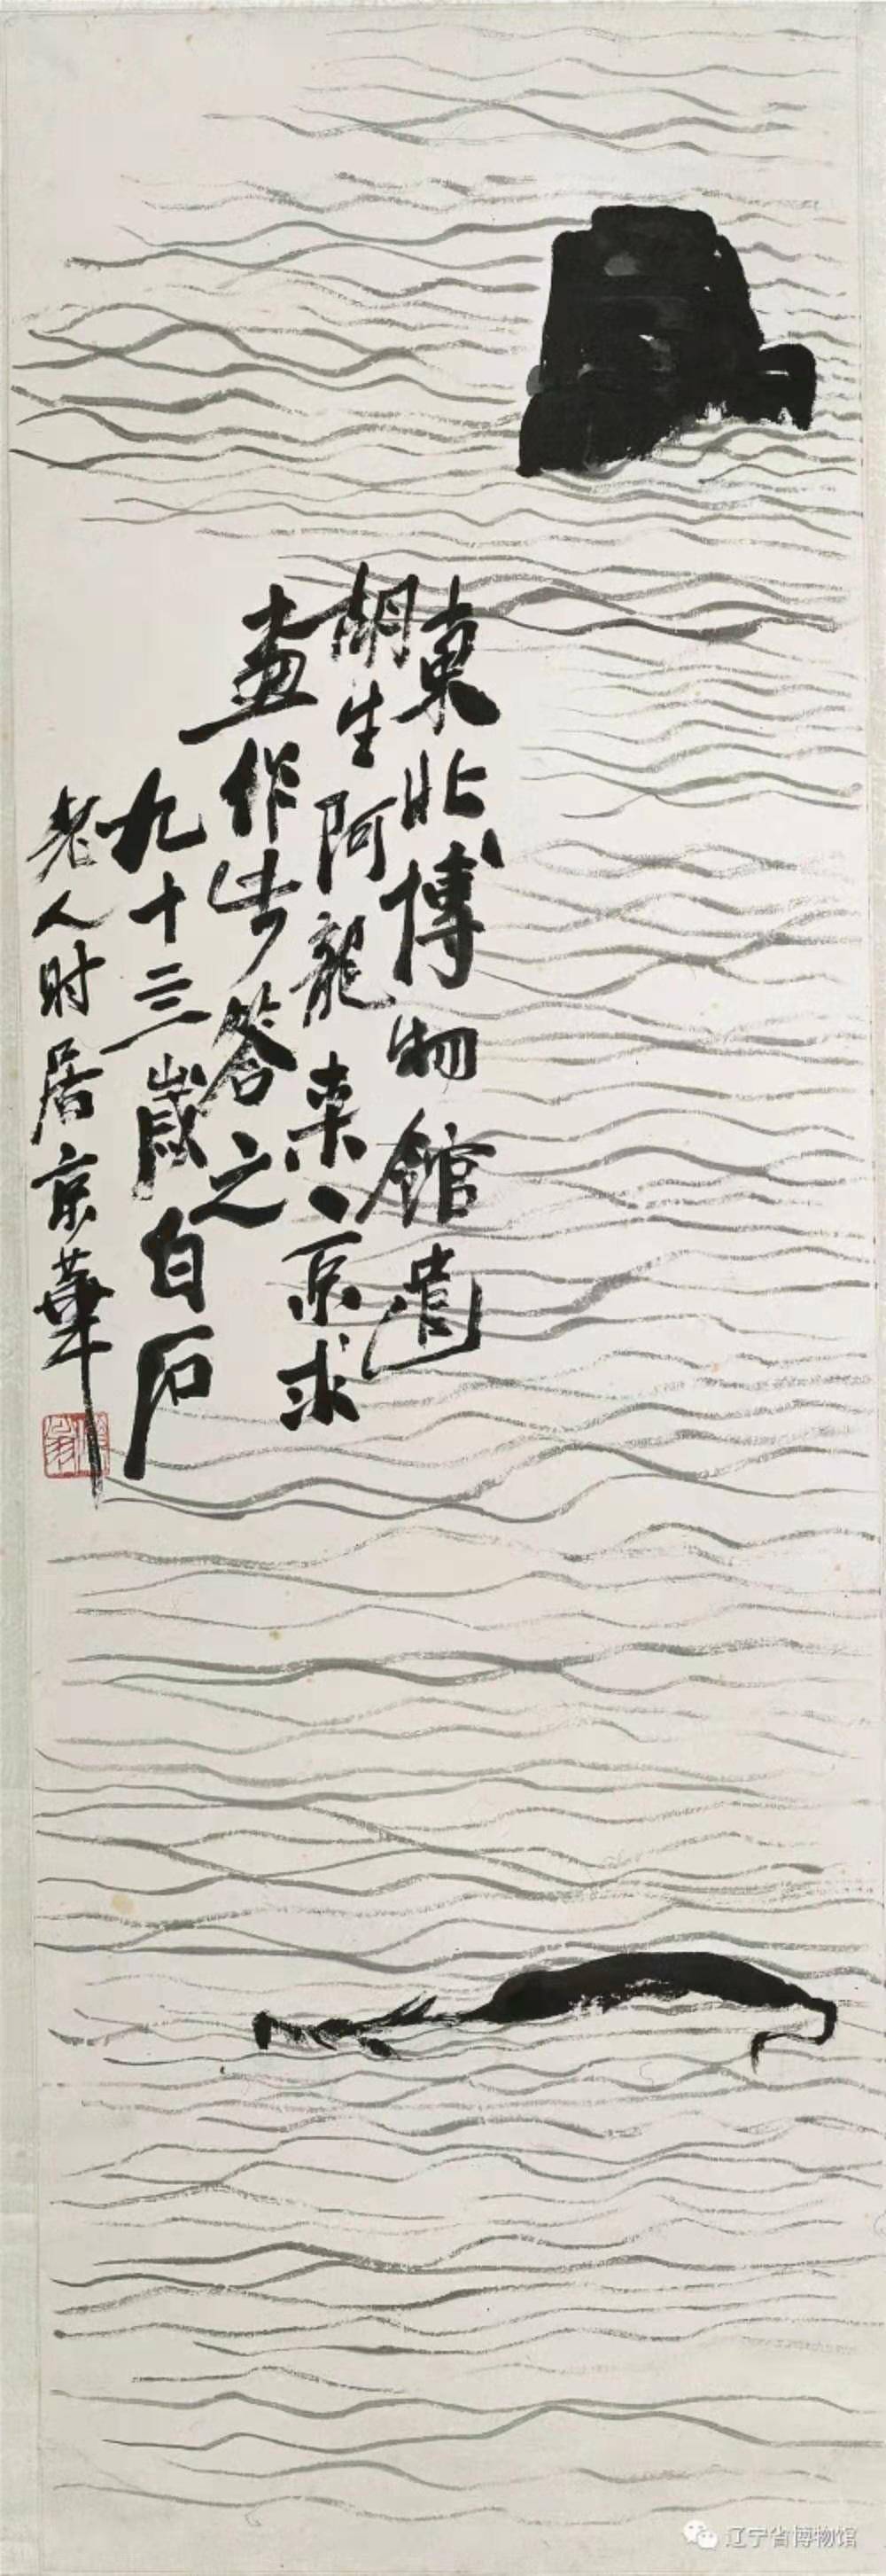 東北博物館遣
胡生阿龍来京求
畫作此答之
九十三歲白石
老人时居京華
辽宁省博物馆